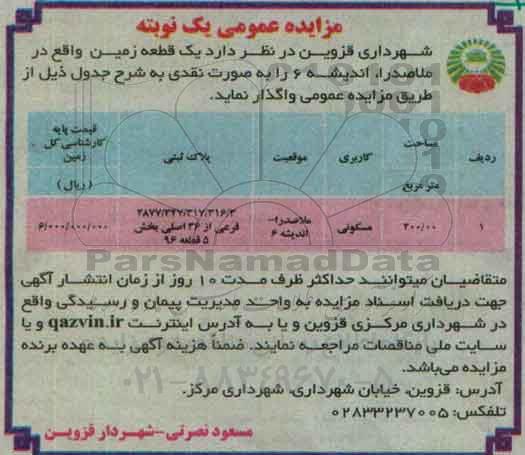 مزایده عمومی یک نوبته
شهرداری قزوین در نظر دارد یک قطعه زمین واقع در
ملاصدرا، اندیشه ۶ را به صورت نقدی به شرح جدول ذیل از
طریق مزایده عمومی واگذار نماید.
ردیف
مساحت
متر مربع
کاربری
موقعیت
پلاک ثبتی
قیمت پایه
کارشناسی کل
زمین
(ریال)
۱
۲۰۰/۰۰
مسکونی
ملاصدرا-
اندیشه ۶
۲۸۷۷/۳۴۷/۳۱۷/۳۱۶/۳
فرعی از ۳۶ اصلی بخش
۵ قطعه ۹۶
۶/۰۰۰/۰۰۰/۰۰۰
ParsNamadData
متقاضیان میتوانند حداکثر ظرف مدت ۱۰ روز از زمان انتشار آگهی
جهت دریافت اسناد مزایده به واحد مدیریت پیمان و رسیدگی واقع
در شهرداری مرکزی قزوین و یا به آدرس اینترنت qazvin.ir و یا
سایت ملی مناقصات مراجعه نمایند. ضمناً هزینه آگهی به عهده برنده
مزایده می‌باشد.
۰۲۱-۸۸۳۴۹۶۷۰-۵
آدرس: قزوین، خیابان شهرداری، شهرداری مرکز.
تلفکس: ۰۲۸۳۳۲۳۷۰۰۵
مسعود نصرتی-شهردار قزوین